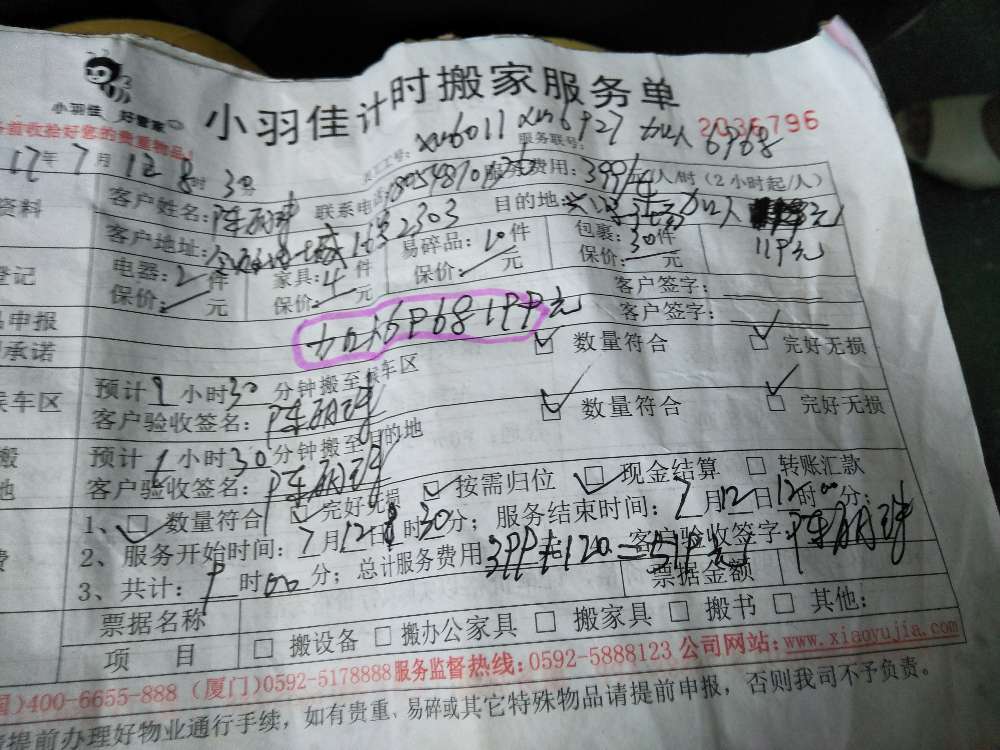 小羽佳 好管家
小羽佳计时搬家服务单
前收拾好您的贵重物品!
2036796
员工工号: xm6011 xm6927 加人6968
服务联号:
17年7月12日8时30分
客户姓名: 联系电话: 服务费用:399/车/人/时(2小时起/人)
资料
客户地址: 2303 目的地:
119元
登记
电器:2件 家具:4件 易碎品:10件 包裹:30件
保价: 元 保价: 元 保价: 元 保价: 元
客户签字:
品申报
客户签字:
承诺
数量符合 完好无损
候车区
预计1小时30分钟搬至候车区
客户验收签名:
数量符合 完好无损
搬
预计1小时30分钟搬至目的地
地
客户验收签名:
1、数量符合 完好无损 按需归位 现金结算 转账汇款
2、服务开始时间:7月12日8时30分;服务结束时间:7月12日12时00分;
费
3、共计: 时00分;总计服务费用 客户验收签字:
票据名称 票据金额
项 目 搬设备 搬办公家具 搬家具 搬书 其他:
国)400-6655-888 (厦门)0592-5178888 服务监督热线:0592-5888123 公司网站:www.xiaoyujia.com
提前办理好物业通行手续,如有贵重、易碎或其它特殊物品请提前申报,否则我司不予负责。